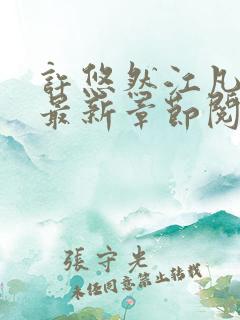 許悠然江凡
最新章節閱
張守光
未經同意禁止轉載